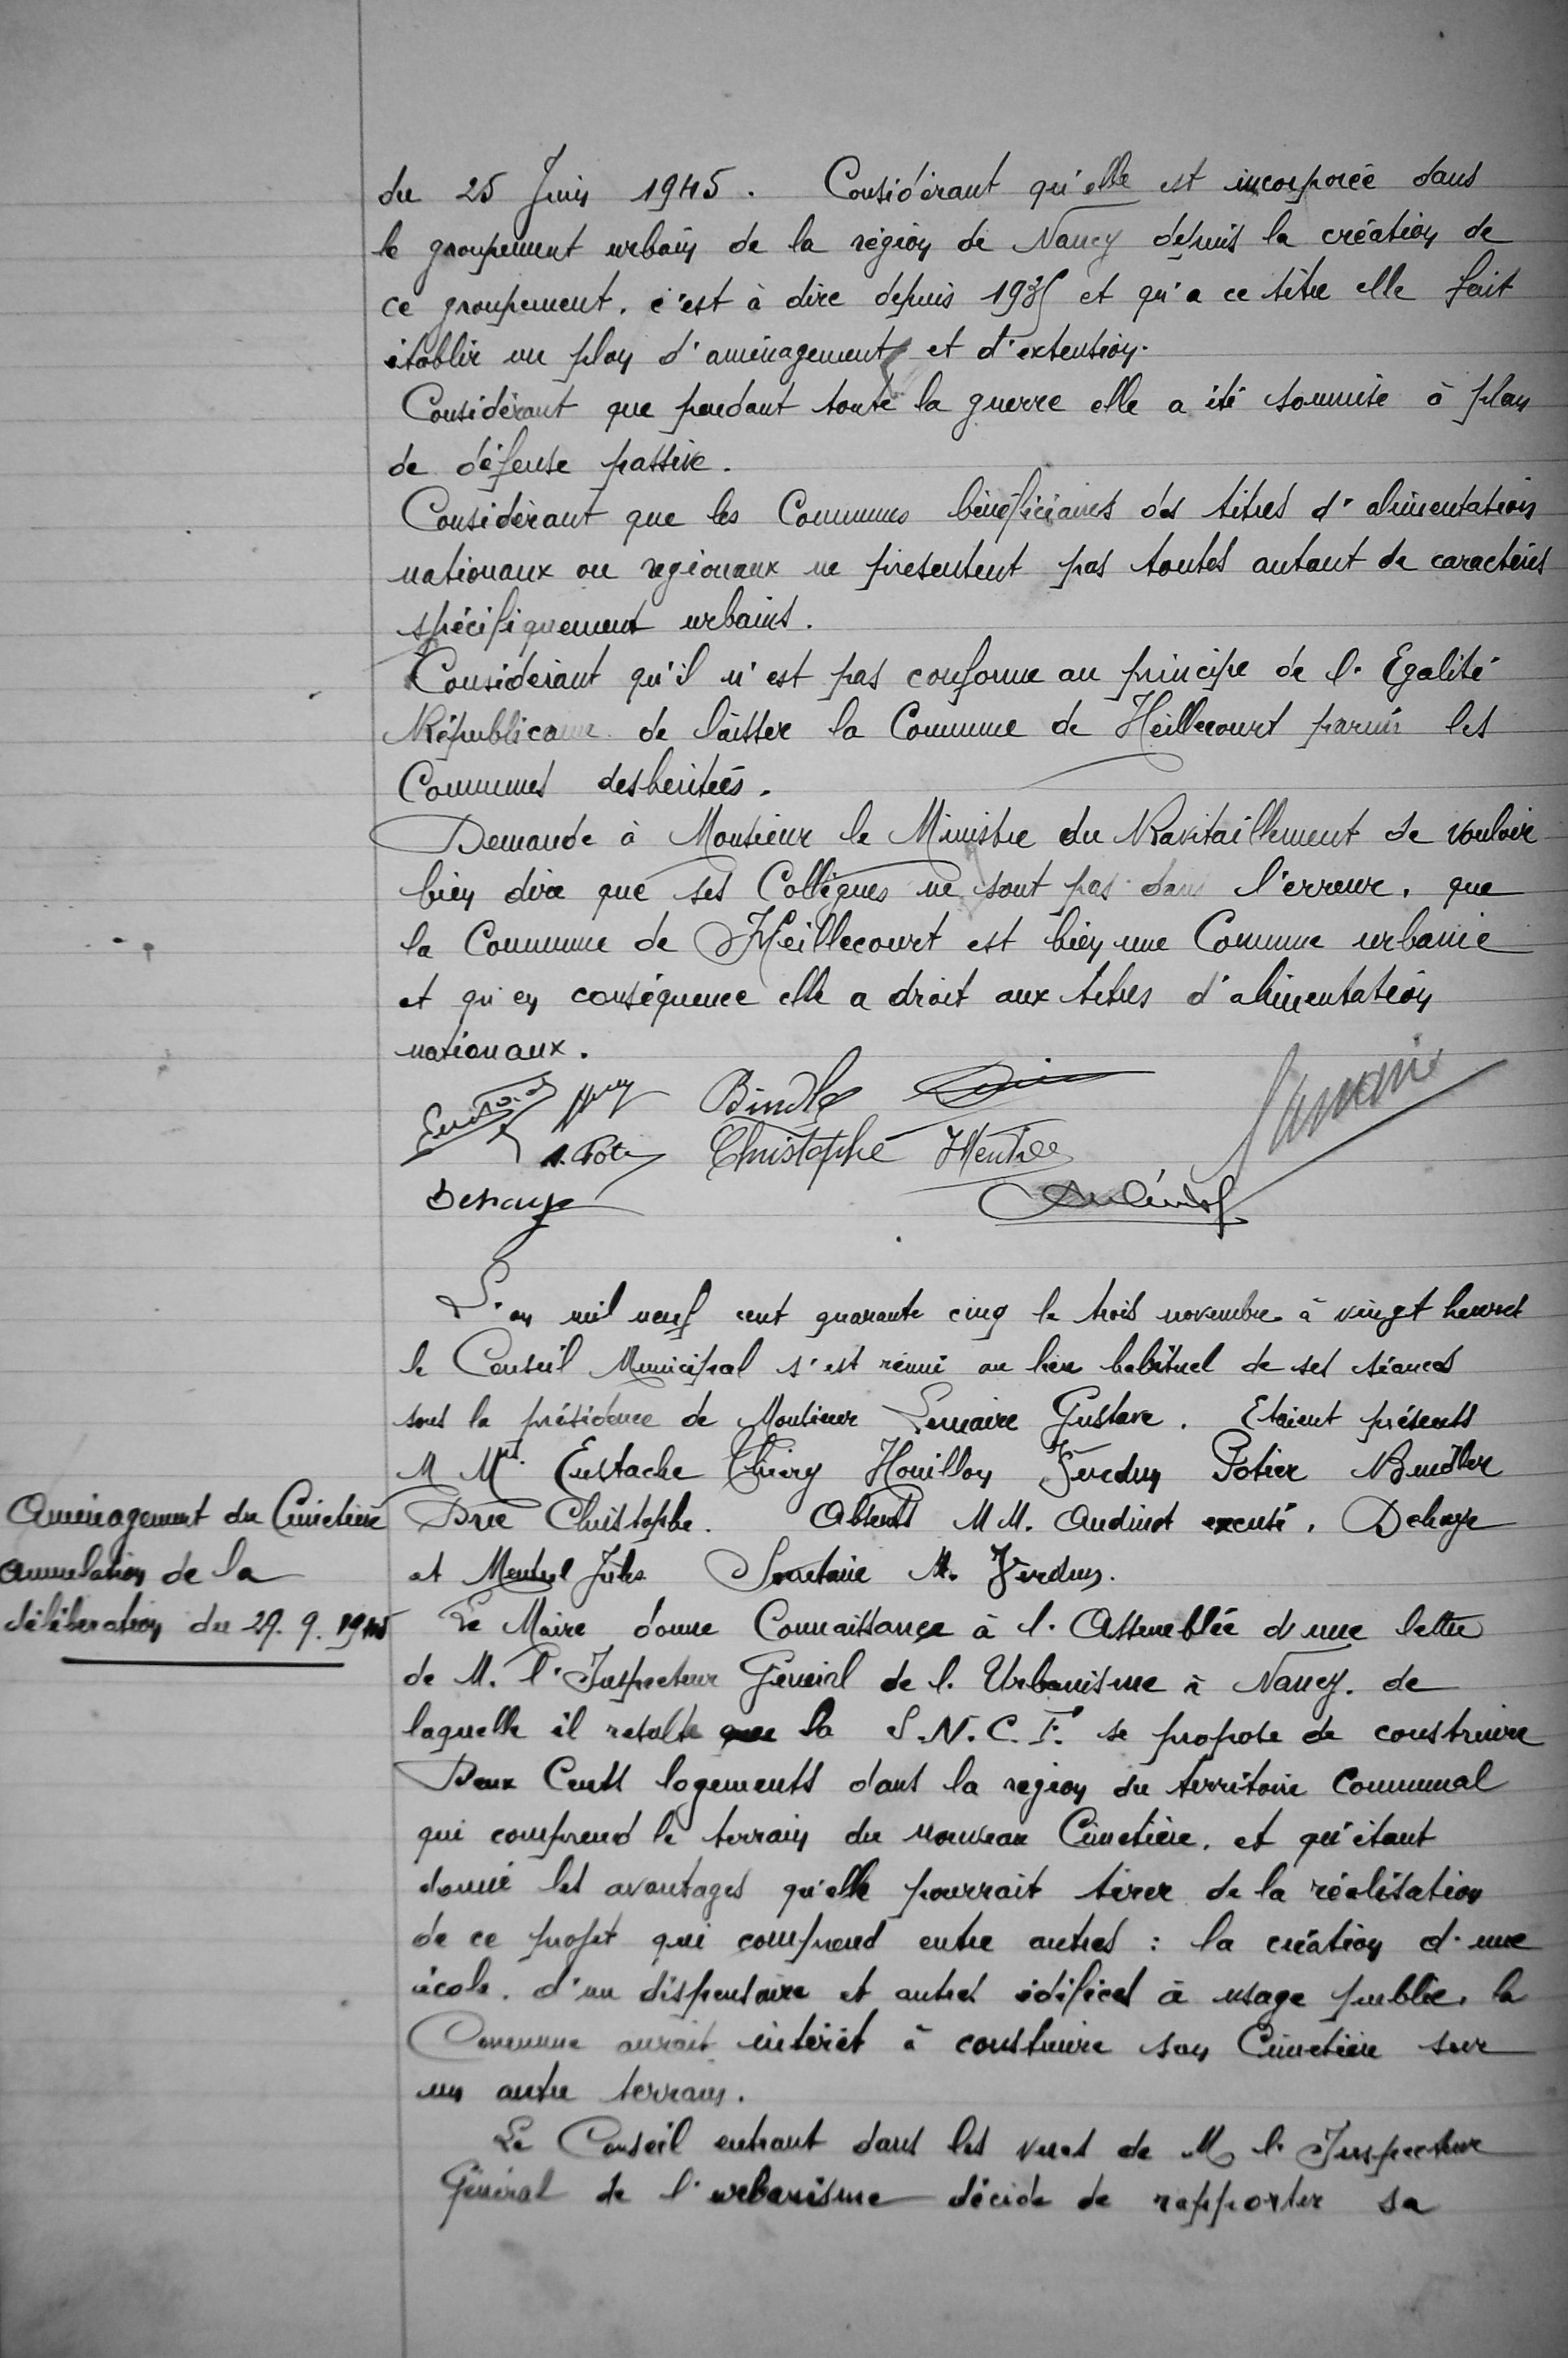 du 25 Juin 1945. Considérant qu'elle est incorporée dans
le groupement urbain de la région de Nancy depuis la création de
ce groupement, c'est à dire depuis 1935 et qu'a ce titre elle fait
établir un plan d'aménagement et d'extention.
Considérant que pendant toute la guerre elle a été soumise à plan
de défense passive.
Considérant que les Communes bénéficiaires des titres d'alimentation
nationaux ou regionaux ne présentent pas toutes autant de caractères
spécifiquement urbains.
Considérant qu'il n'est pas conforme au principe de l'Egalité
Républicaine de laisser la Commune de Heillecourt parmi les
Communes desheritées.
Demande à Monsieur le Ministre du Ravitaillement de vouloir
bien dire que ses Collègues ne sont pas dans l'erreur, que
la Commune de Heillecourt est bien une Commune urbaine
et qu'en conséquence elle a droit aux titres d'alimentation
nationaux.
Bindler
Christophe
Dehaye
L'an mil neuf cent quarante cinq le trois novembre à vingt heures
le Conseil Municipal s'est réuni au lieu habituel de ses séances
sous la présidence de Monsieur Lemaire Gustave. Etaient présents
M Mrs Eustache Thiery Houillon Verdun Potier Bindler
Drie Christophe. Absents MM. Audinot excusé, Dehaye
et Jules Secrétaire M. Verdun.
Aménagement du Cimetière
annulation de la
délibération du 29. 9. 1945
Le Maire donne Connaissance à l'Assemblée d'une lettre
de M. l'Inspecteur Général de l'Urbanisme à Nancy, de
laquelle il resulte que la S.N.C.F. se propose de construire
Deux Cents logements dans la region du territoire Communal
qui comprend le terrain du nouveau Cimetière, et qu'étant
donné les avantages qu'elle pourrait tirer de la réalisation
de ce projet qui comprend entre autres : la création d'une
école, d'un dispensaire et autres édifices à usage public, la
Commune aurait intérêt à construire son Cimetière sur
un autre terrain.
Le Conseil entrant dans les vues de M l'Inspecteur
Général de l'urbanisme décide de rapporter sa